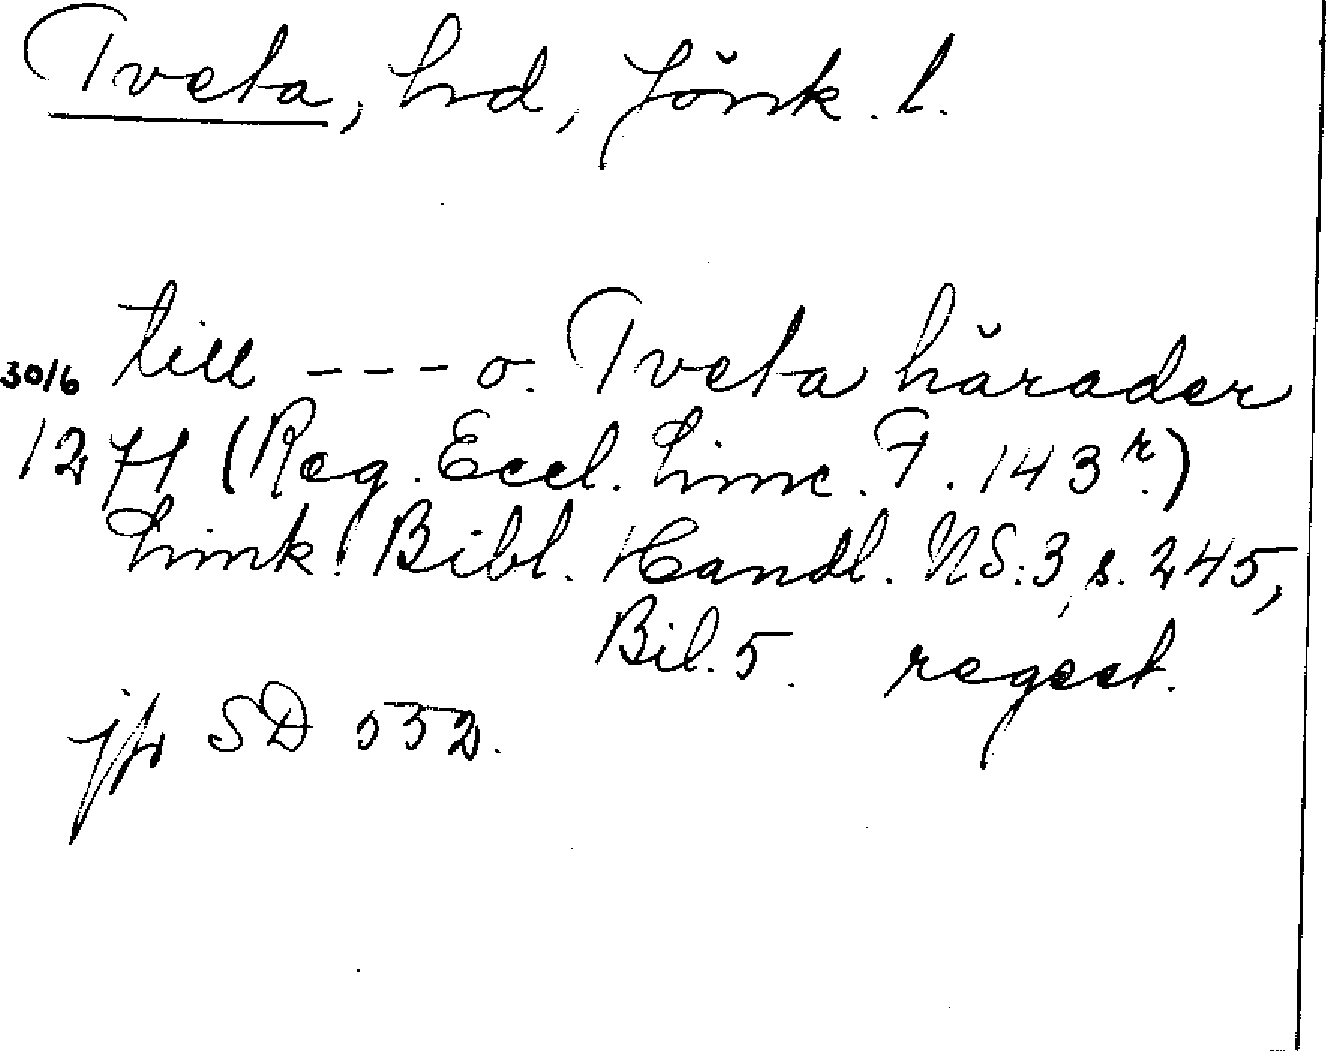 Tveta, hd, Jönk. l.
till --- o. Tveta härader
30/6
1271 (Reg. Eccl. Linc. F. 143r.)
Link. Bibl. Handl. NS:3, s. 245,
Bil. 5. regest.
jfr SD 552.